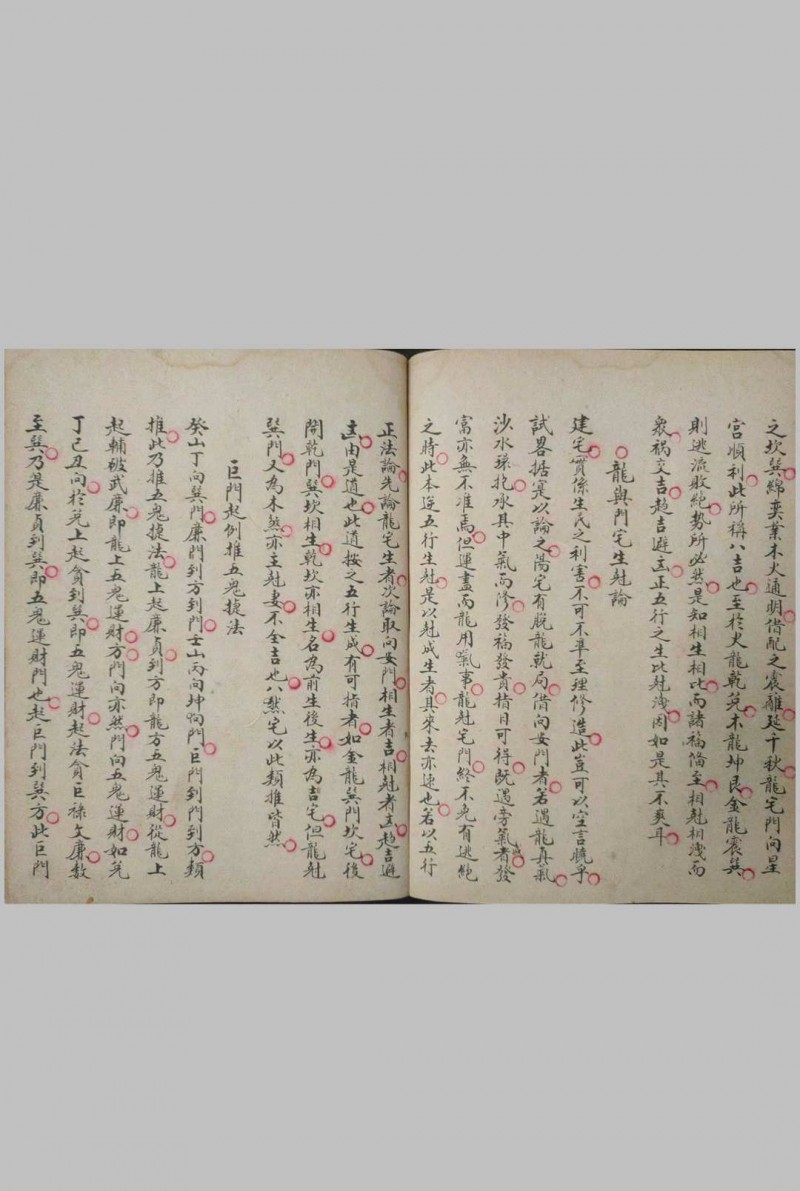 之坎巽綿奕業木火通明偕配之震離延千秋龍宅門向星
宮順利此所稱八吉也至於火龍乾兌木龍坤艮金龍震巽
則逃流敗絕勢所必然是知相生相比而諸福俻至相尅相洩而
衆禍交吉趋吉避凶正五行之生比尅洩因如是其不爽耳
龍與門宅生尅論
建宅實係生民之利害不可不準至理修造此豈可以空言曉乎
試畧据寔以論之陽宅有脫龍就局借向安門者若遇龍真氣
沙水環抱承其中氣而修發福發貴指日可得旣遇旁氣者發
富亦無不准焉但運盡而龍用㬰事龍尅宅門終不免有逃絕
之時此本逆五行生尅是以尅成生者其來去亦速也若以五行
正法論先論龍宅生者次論取向安門相生者吉相尅者凶趋吉避
凶由是道也此道按之五行生成有可指者如金龍巽門坎宅後
開乾門巽坎相生乾坎亦相生名為前生後生亦為吉宅但龍尅
巽門又為木煞亦主尅妻不全吉也八煞宅以此類推皆然
巨門起例推五鬼捷法
癸山丁向巽門廉門到方到門壬山丙向坤向門巨門到門到方類
推此乃推五鬼捷法龍上起廉貞到方即龍方五鬼運財從龍上
起輔破武廉即龍上五鬼運財方門向亦然門向五鬼運財如兌
丁己丑向於兌上起貪到巽即五鬼運財起法貪巨祿文廉数
至巽乃是廉貞到巽即五鬼運財門也起巨門到巽方此巨門